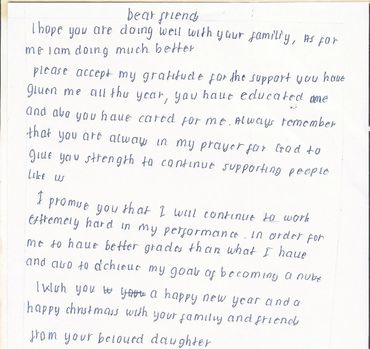 Dear friend
I hope you are doing well with your family, As for
me I am doing much better
please accept my gratitude for the support you have
given me all the year, you have educated me
and also you have cared for me. Always remember
that you are always in my prayer for God to
give you strength to continue supporting people
like us
I promise you that I will continue to work
extremely hard in my performance. In order for
me to have better grades than what I have
and also to achieve my goals of becoming a nurse
I wish you a happy new year and a
happy christmas with your family and friends
from your beloved daughter